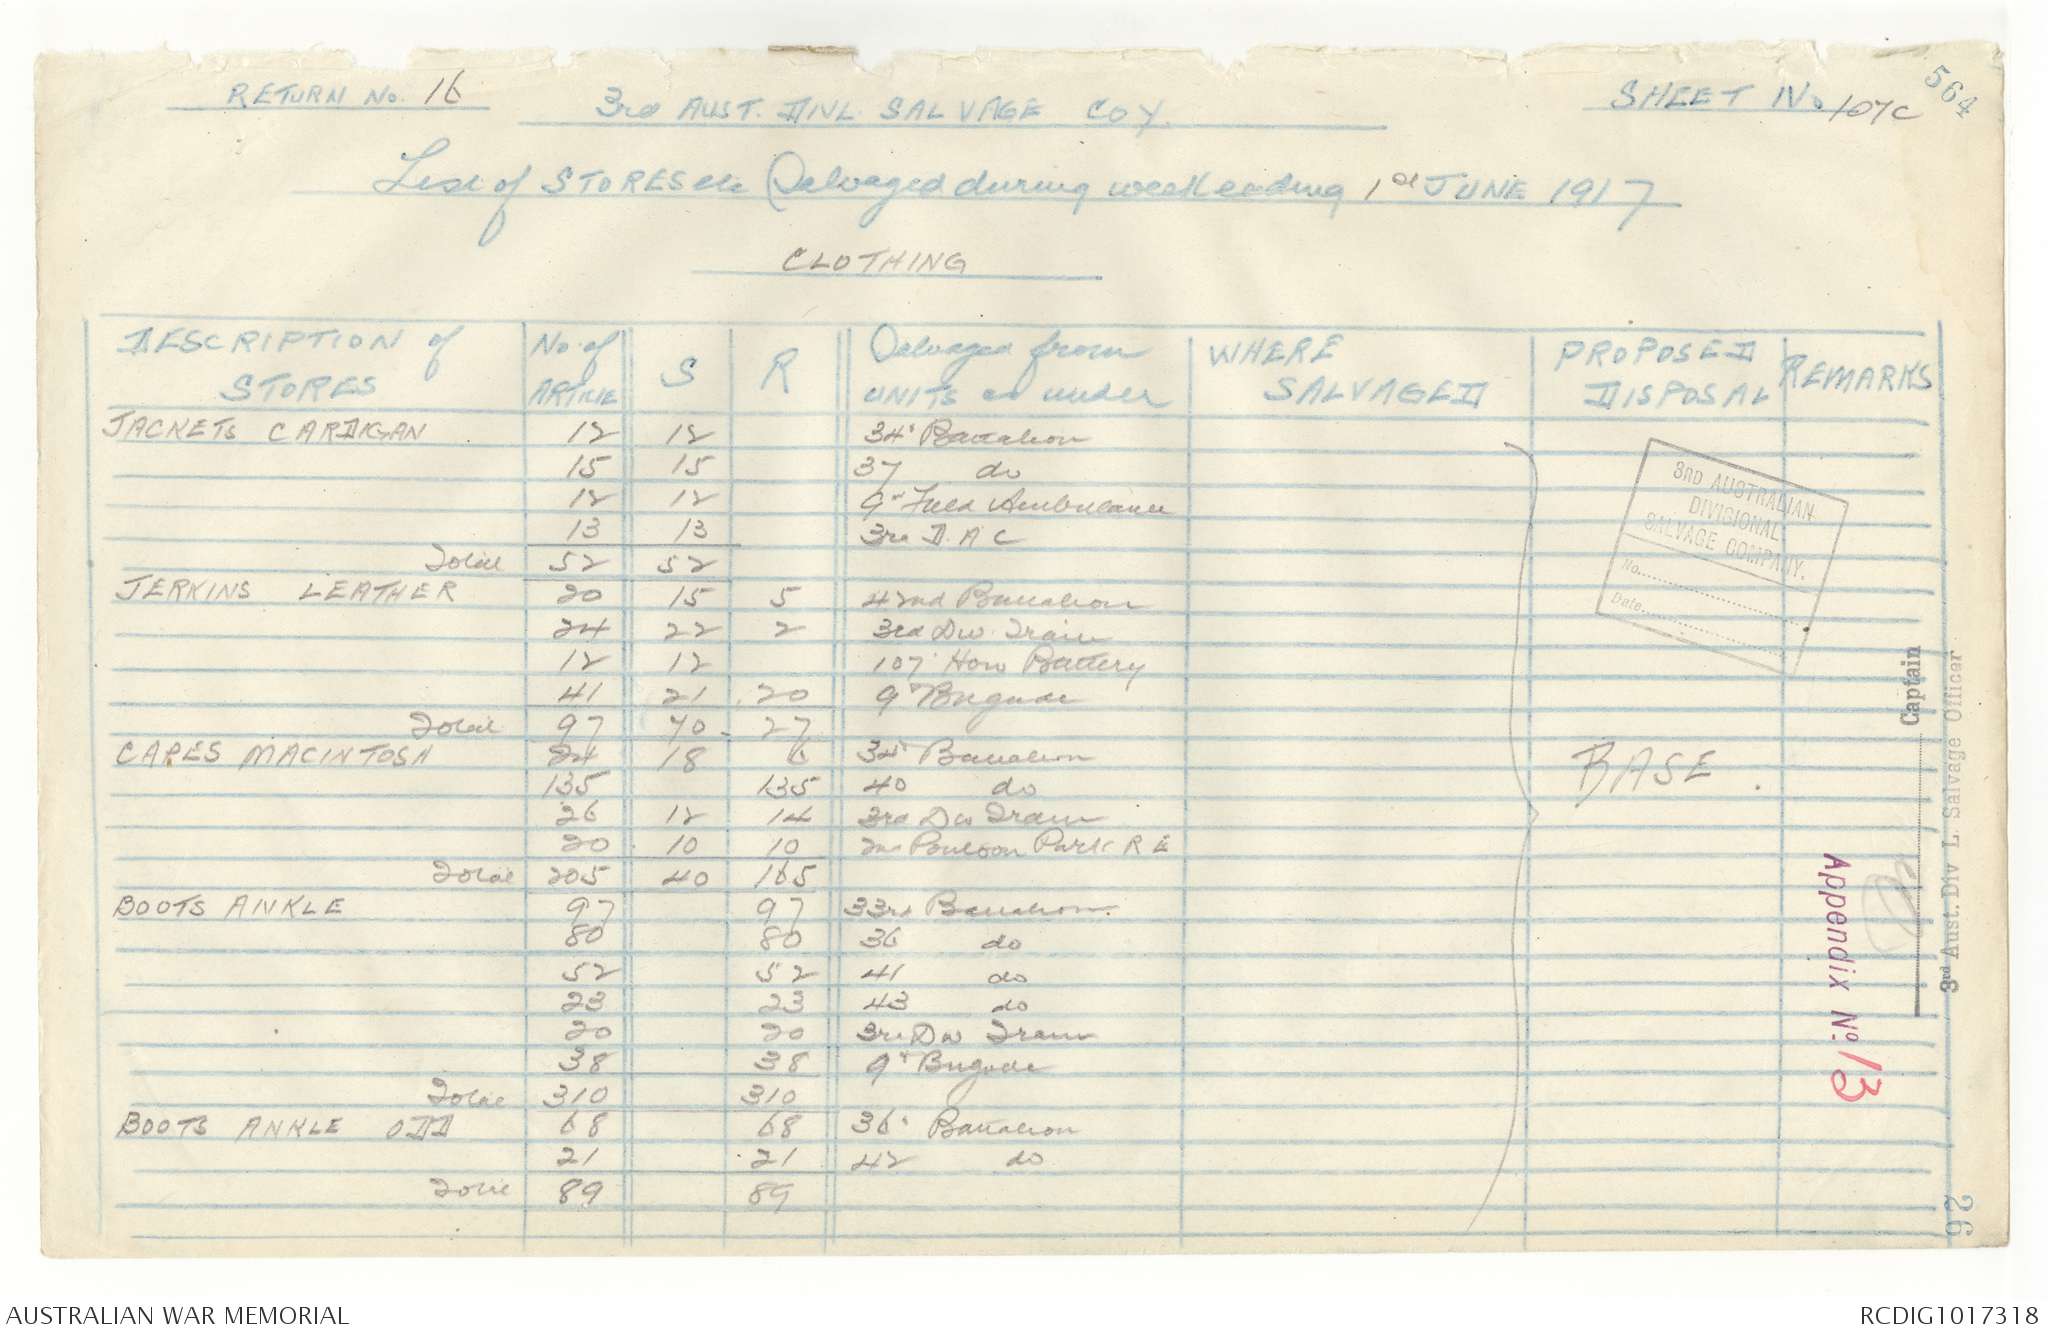 RETURN No. 16
3rd AUST. DIVL. SALVAGE COY.
SHEET No 107C
564
List of STORES etc Salvaged during week ending 1st JUNE 1917
CLOTHING
DESCRIPTION of STORES | No. of ARTICLE | S | R | Salvaged from UNITS as under | WHERE SALVAGED | PROPOSED DISPOSAL | REMARKS
JACKETS CARDIGAN 12 12 34" Battalion
15 15 37 do
12 12 9" Field Ambulance
13 13 3rd D.A C
Total 52 52
JERKINS LEATHER 20 15 5 42nd Battalion
24 22 2 3rd Div. Train
12 12 107" How Battery
41 21 20 9" Brigade
Total 97 70 27
CAPES MACINTOSH 24 18 6 34" Battalion
135 135 40 do
26 12 14 3rd Div Train
20 10 10 2nd Pontoon Park R E
Total 205 40 165
BOOTS ANKLE 97 97 33rd Battalion.
80 80 36 do
52 52 41 do
23 23 43 do
20 20 3rd Div Train
38 38 9" Brigade
Total 310 310
BOOTS ANKLE ODD 68 68 36" Battalion
21 21 42 do
Total 89 89
BASE.
3RD AUSTRALIAN
DIVISIONAL
SALVAGE COMPANY.
No..............
Date..............
Captain
3rd Aust. Div L. Salvage Officer
Appendix No. 13
26
AUSTRALIAN WAR MEMORIAL
RCDIG1017318